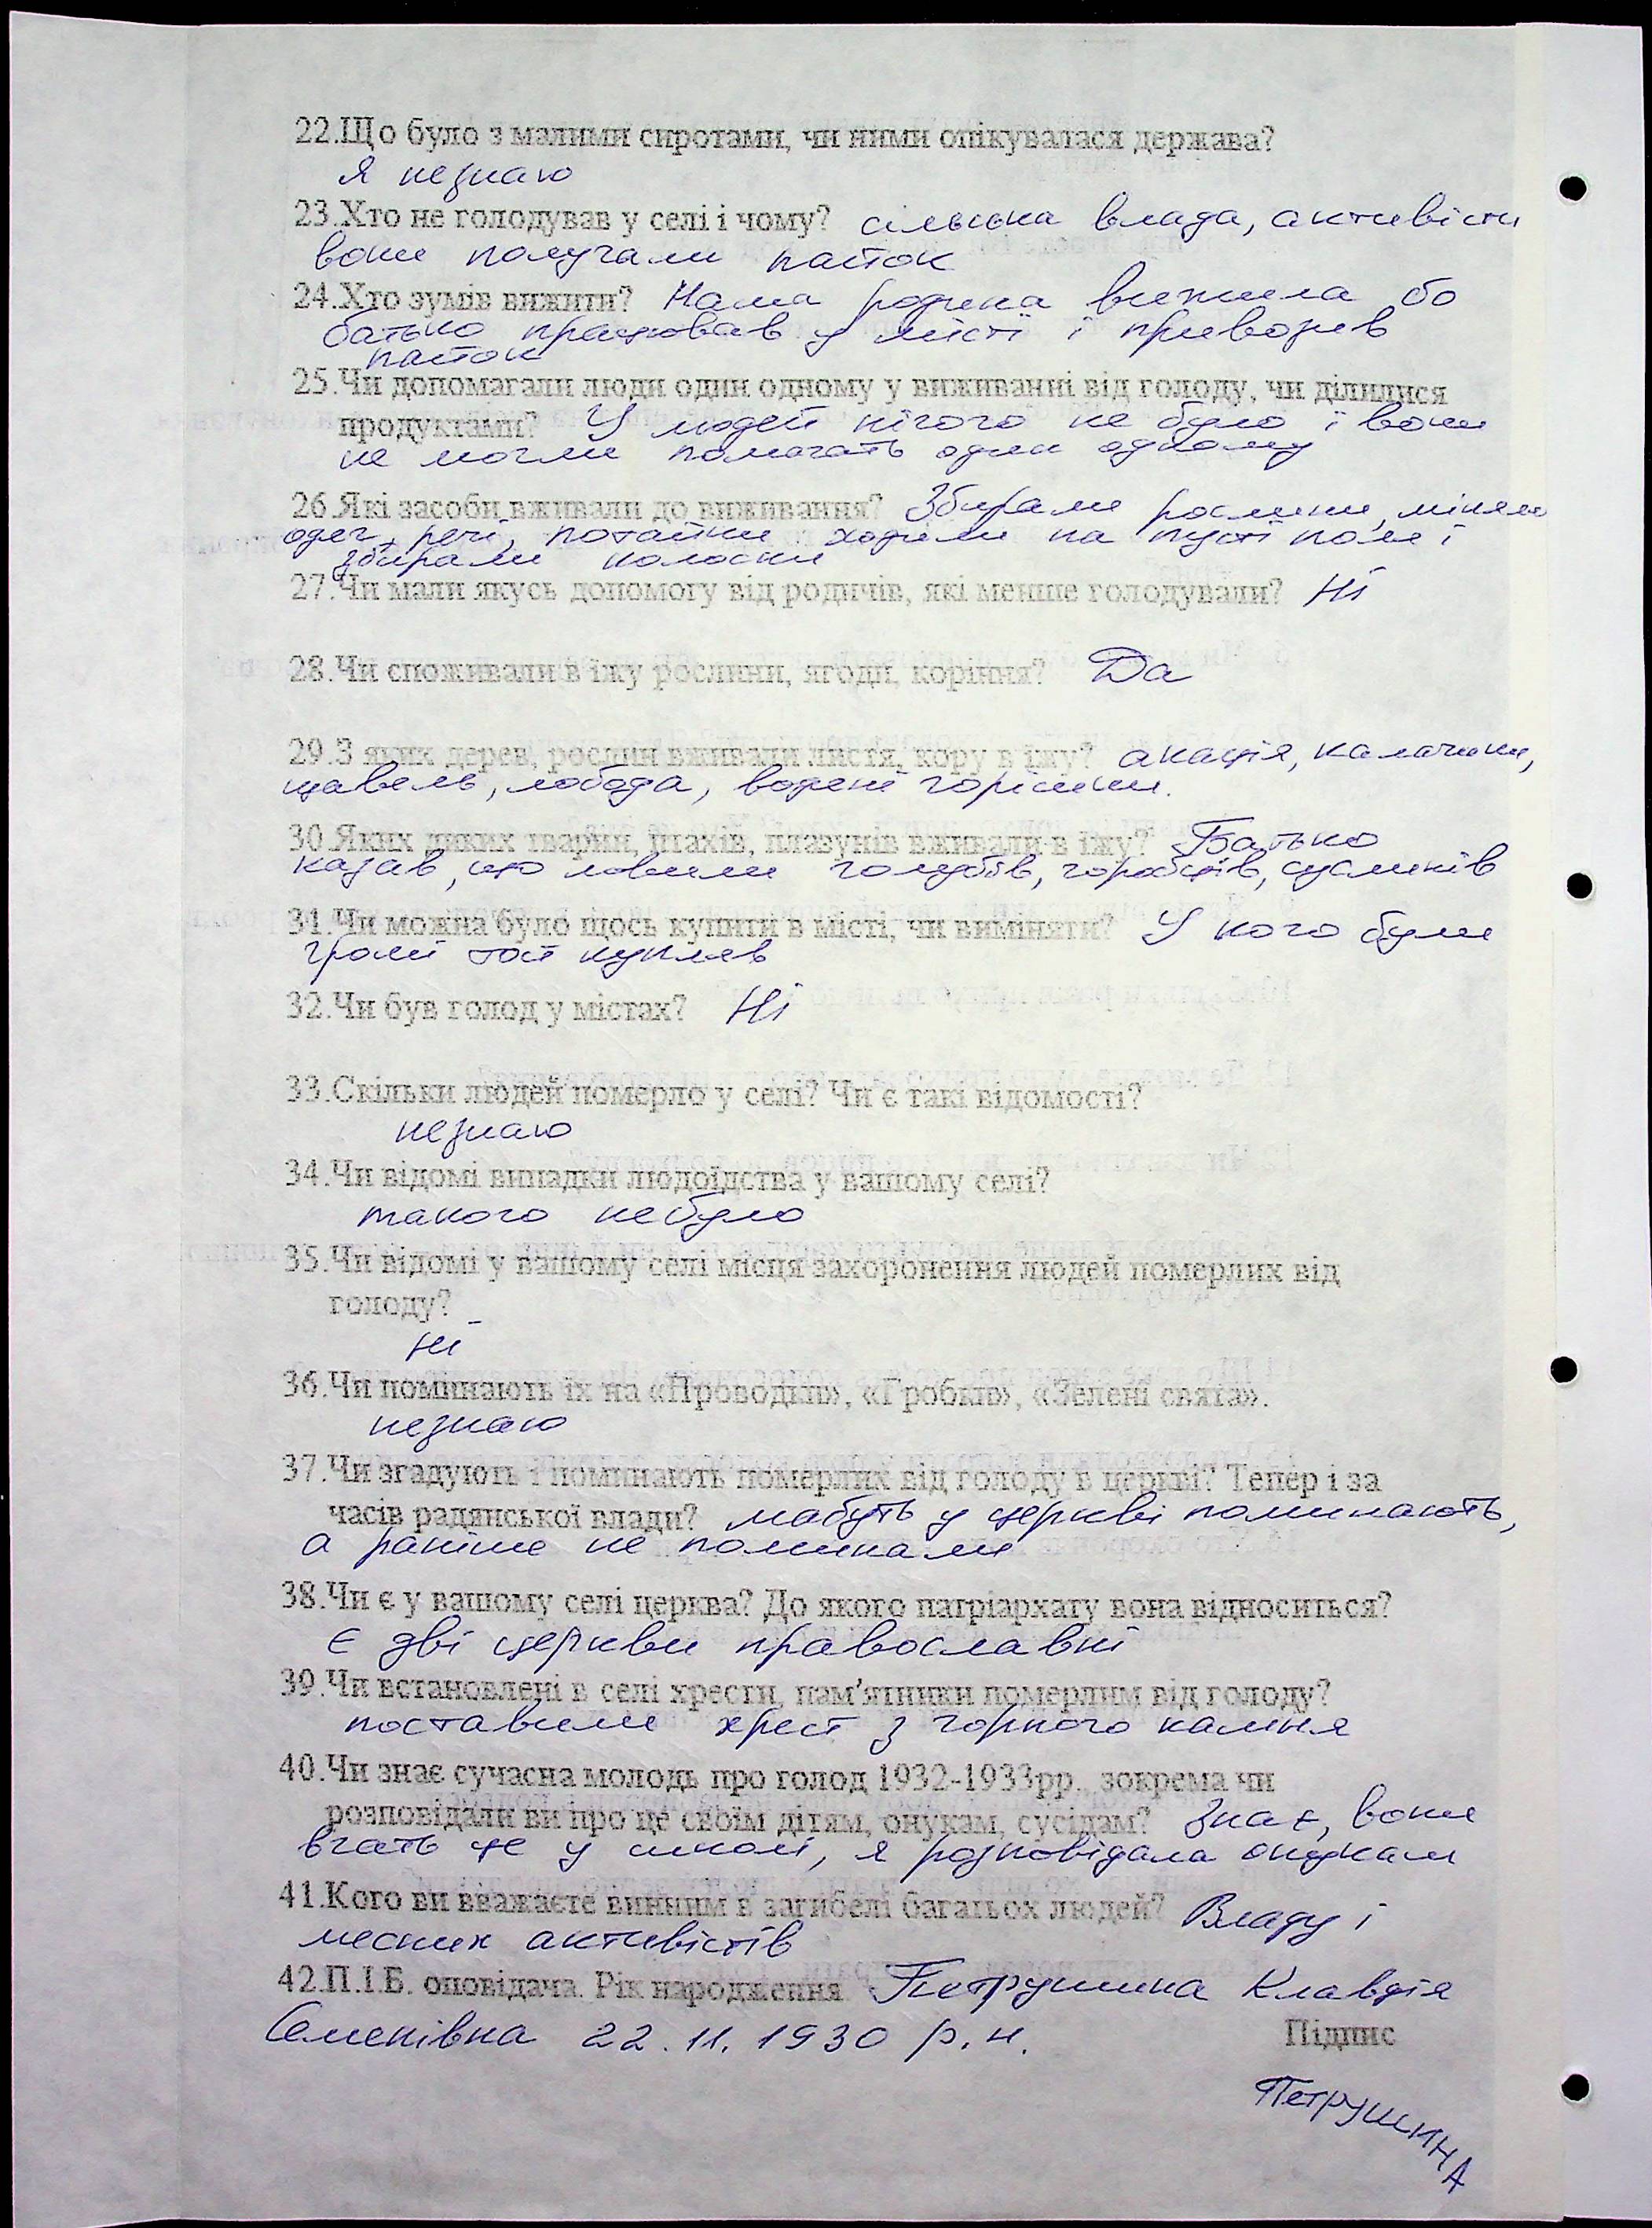 22.Що було з малими сиротами, чи ними опікувалася держава?
я незнаю
23.Хто не голодував у селі і чому? сільська влада, активісти
вони получали пайок
24.Хто зумів вижити? Наша родина вижила бо
батько працював у місті і привозив
пайок
25.Чи допомагали люди один одному у виживанні від голоду, чи ділилися
продуктами? У людей нічого не було і вони
не могли помагать один одному
26.Які засоби вживали до виживання? Збирали рослини, міняли
одяг, речі, потайки ходили на пусті поля і
збирали колоски
27.Чи мали якусь допомогу від родичів, які менше голодували? Ні
28.Чи споживали в їжу рослини, ягоди, коріння? Да
29.З яких дерев, рослин вживали листя, кору в їжу? акація, калачики,
щавель, лобода, водяні горішки.
30.Яких диких тварин, птахів, плазунів вживали в їжу? Батько
казав, що ловили голубів, горобців, сусликів
31.Чи можна було щось купити в місті, чи виміняти? У кого були
гроші той купляв
32.Чи був голод у містах? Ні
33.Скільки людей померло у селі? Чи є такі відомості?
незнаю
34.Чи відомі випадки людоїдства у вашому селі?
такого небуло
35.Чи відомі у вашому селі місця захоронення людей померлих від
голоду?
Ні
36.Чи поминають їх на «Проводків», «Гробків», «Зелені свята».
незнаю
37.Чи згадують і поминають померлих від голоду в церкві? Тепер і за
часів радянської влади? мабуть у церкві поминають,
а раніше не поминали
38.Чи є у вашому селі церква? До якого патріархату вона відноситься?
Є дві церкви православні
39.Чи встановлені в селі хрести, пам'ятники померлим від голоду?
поставили хрест з чорного каміня
40.Чи знає сучасна молодь про голод 1932-1933рр., зокрема чи
розповідали ви про це своїм дітям, онукам, сусідам? Знає, вони
вчать це у школі, я розповідала онукам
41.Кого ви вважаєте винним в загибелі багатьох людей? Владу і
месних активістів
42.П.І.Б. оповідача. Рік народження. Петрушина Клавдія
Семенівна 22.11.1930 р.н.
Підпис
Петрушина